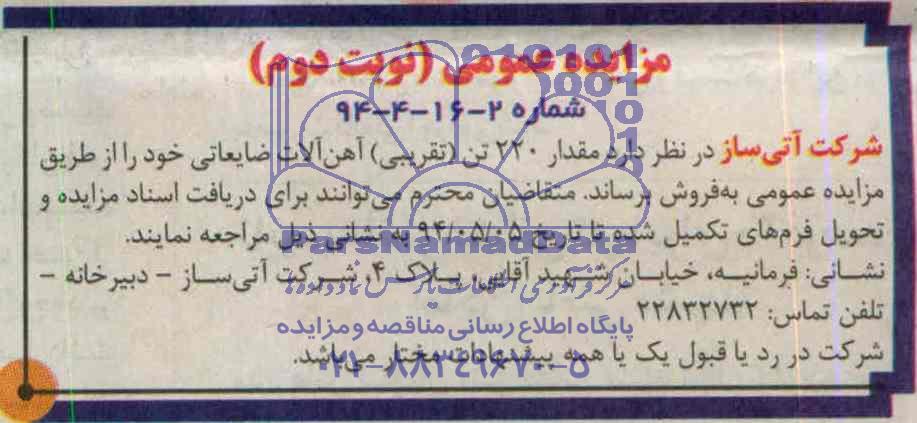 مزایده عمومی (نوبت دوم)
شماره ۲-۱۶-۴-۹۴
شرکت آتی‌ساز در نظر دارد مقدار ۲۲۰ تن (تقریبی) آهن‌آلات ضایعاتی خود را از طریق
مزایده عمومی به‌فروش برساند. متقاضیان محترم می‌توانند برای دریافت اسناد مزایده و
تحویل فرم‌های تکمیل شده تا تاریخ ۹۴/۰۵/۰۵ به نشانی ذیل مراجعه نمایند.
ParsNamadData
نشانی: فرمانیه، خیابان شهید آقایی، پلاک ۴، شرکت آتی‌ساز - دبیرخانه -
تلفن تماس: ۲۲۸۳۲۷۳۲
پایگاه اطلاع رسانی مناقصه و مزایده
شرکت در رد یا قبول یک یا همه پیشنهادات مختار می‌باشد.
۰۲۱-۸۸۳۴۹۶۷۰-۵